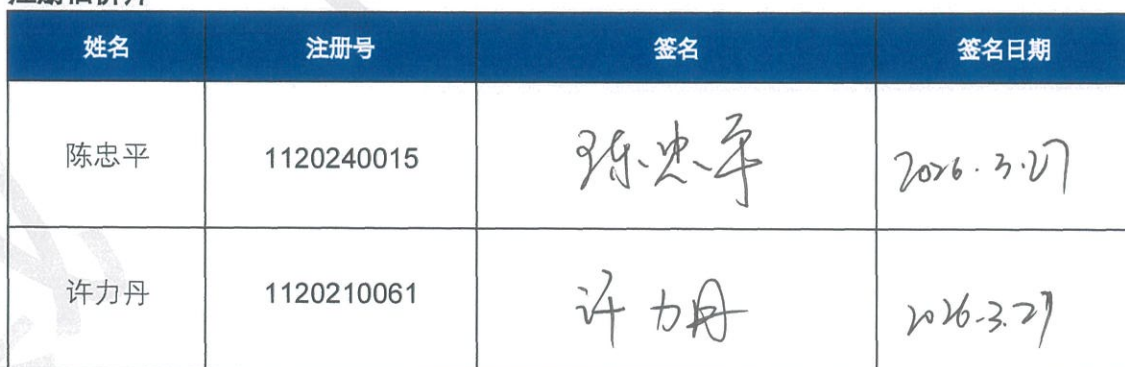 注册估价师
姓名 注册号 签名 签名日期
陈忠平 1120240015 陈忠平 2026.3.27
许力丹 1120210061 许力丹 2026.3.27